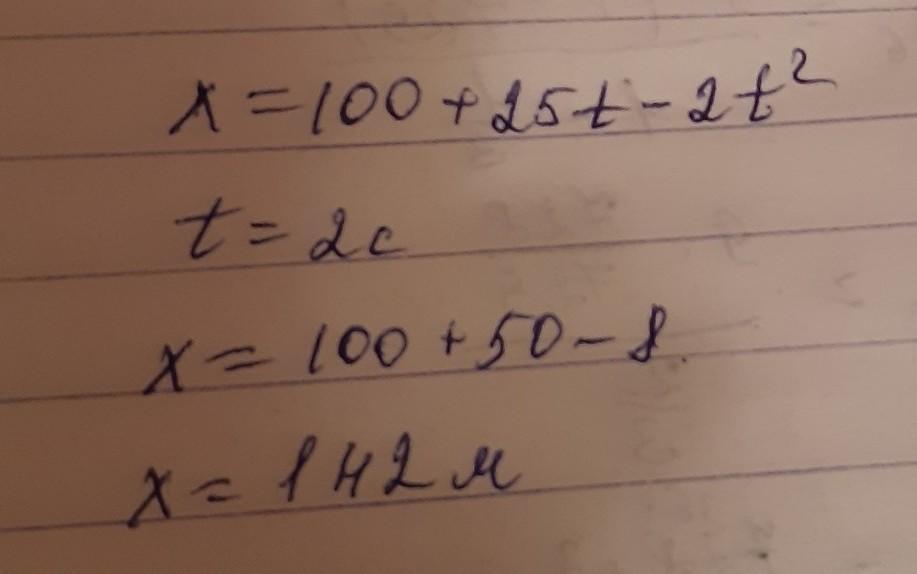 x = 100 + 25t - 2t²
t = 2c
x = 100 + 50 - 8
x = 142м